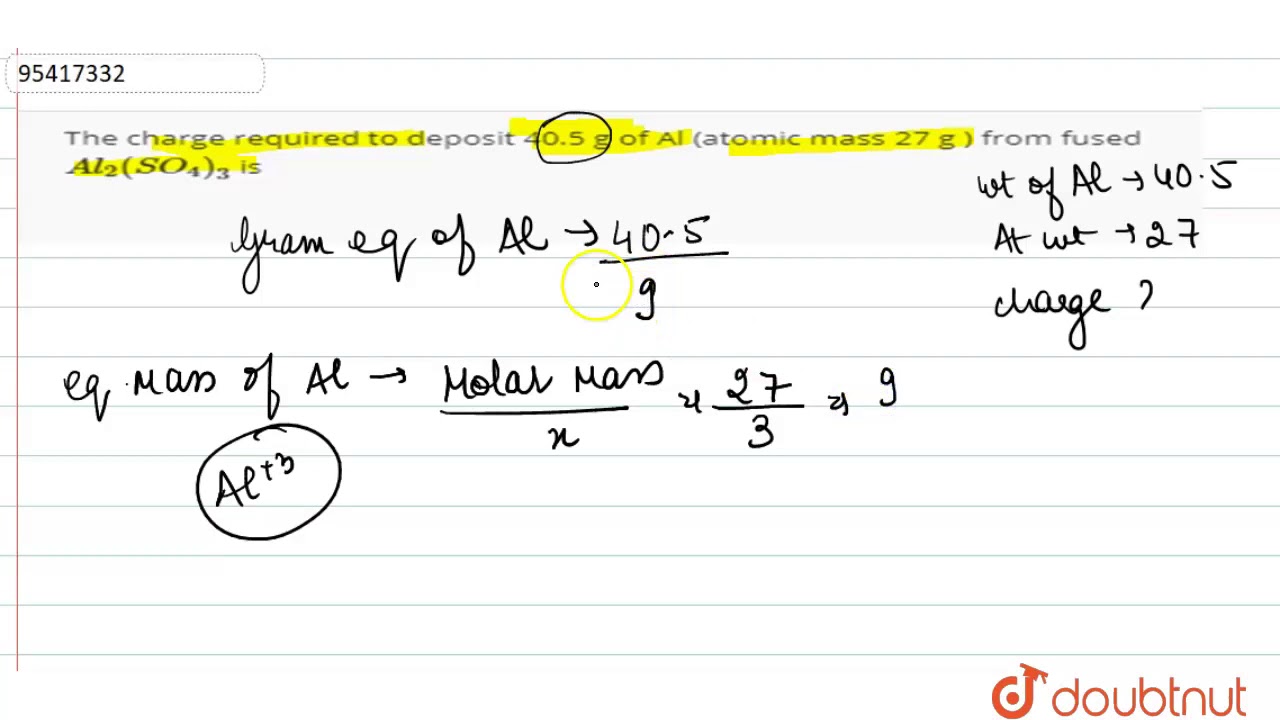 95417332
The charge required to deposit 40.5 g of Al (atomic mass 27 g ) from fused
Al₂(SO₄)₃ is
wt of Al → 40.5
At wt → 27
charge ?
Gram eq of Al → 40.5
9
eq. Mass of Al → Molar Mass / x = 27 / 3 ⇒ 9
Al⁺³
doubtnut